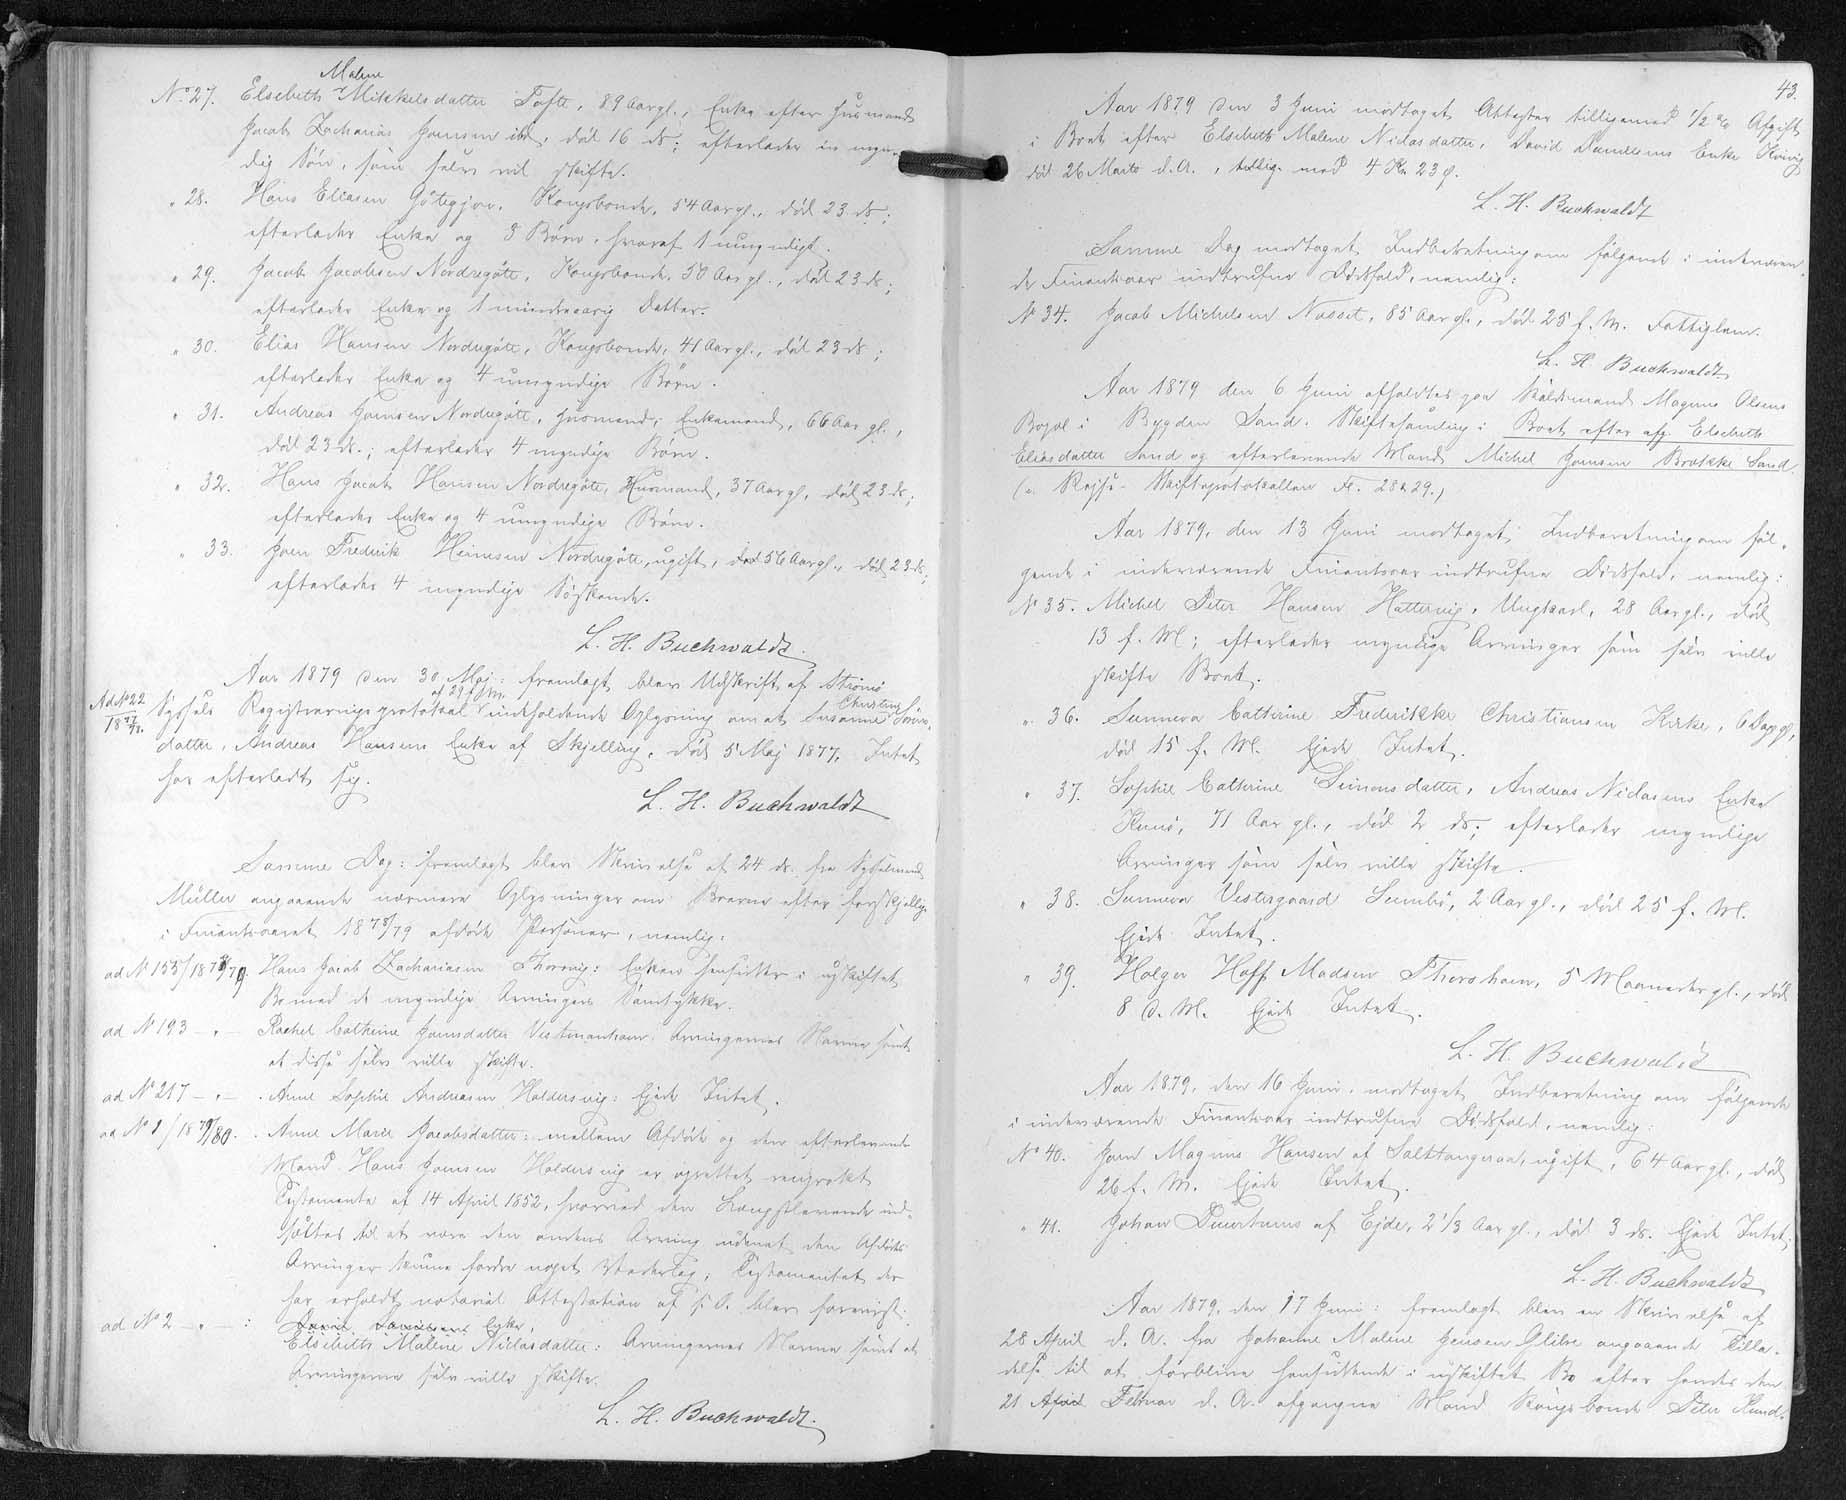 Malene
No. 27. Elsebeth Mikkelsdatter Tofte, 89 Aar gl., Enke efter Husmand
Jacob Zacharias Joensen ibd., død 16 ds; efterlader en myn-
dig Søn, som selv vil skifte.
" 28. Hans Eliasen Gøtegjov, Kongsbonde, 54 Aar gl., død 23 ds;
efterlader Enke og 8 Børn, hvoraf 1 umyndigt.
" 29. Jacob Jacobsen Nordregøte, Kongsbonde, 50 Aar gl., død 23 ds;
efterlader Enke og 1 mindreaarig Datter.
" 30. Elias Hansen Nordregøte, Kongsbonde, 41 Aar gl., død 23 ds;
efterlader Enke og 4 umyndige Børn.
" 31. Andreas Joensen Nordregøte, Husmand, Enkemand, 66 Aar gl.,
død 23 ds.; efterlader 4 myndige Børn.
" 32. Hans Jacob Hansen Nordregøte, Husmand, 37 Aar gl., død 23 ds;
efterlader Enke og 4 umyndige Børn.
" 33. Joen Frederik Heinesen Nordregøte, ugift, død 56 Aar gl., død 23 ds;
efterlader 4 myndige Søskende.
L. H. Buchwaldt.
Aar 1879 den 30 Maj: fremlagt blev Udskrift af Strømø
af 29 f. M. Christine
Ad No 22 / 18 77/78. Syssels Registreringsprotokol indholdende Oplysning om at Susanne Søren-
datter, Andreas Hansens Enke af Skjelling, død 5 Maj 1877, Intet
har efterladt sig.
L. H. Buchwaldt
Samme Dag: fremlagt blev Skrivelse af 24 ds. fra Sysselmand
Müller angaaende nærmere Oplysninger om Boerne efter forskjellige
i Finantsaaret 1878/79 afdøde Personer, nemlig:
ad No 155/1878/79. Hans Jacob Zachariasen Thorsvig: Enken hensidder i uskiftet
Bo med de myndige Arvingers Samtykke.
ad No 193 — " — Rachel Cathrine Joensdatter Vestmanhavn: Arvingernes Navne samt
at disse selv ville skifte.
ad No 217 — " — . Anne Sophie Andreasen Haldersvig: Ejede Intet.
ad No 1/1879/80. . Anne Marie Jacobsdatter: mellem Afdøde og den efterlevende
Mand Hans Joensen Haldersvig er oprettet reciprokt
Testamente af 14 April 1852, hvorved den Længstlevende ind-
sættes til at være den andens Arving uden at den Afdødes
Arvinger kunne fordre noget Vederlag; Testamentet der
har erholdt notarial Attestation af s. D. blev forevist.
ad No 2 — " — : David Danielsens Enke,
Elsebeth Malene Niclasdatter: Arvingernes Navne samt at
Arvingerne selv ville skifte.
L. H. Buchwaldt.
43.
Aar 1879 den 3 Juni modtaget Attester tilligemed 1/2 % Afgift
i Boet efter Elsebeth Malene Niclasdatter, David Danielsens Enke Kvivig
død 26 Marts d. A., tillige med 4 Kr. 23 Ø.
L. H. Buchwaldt
Samme Dag modtaget Indberetning om følgende i indeværen-
de Finantsaar indtrufne Dødsfald, nemlig:
No 34. Jacob Michelsen Næsset, 85 Aar gl., død 25 f. M. Fattiglem.
L. H. Buchwaldt
Aar 1879 den 6 Juni afholdtes paa Skildsmand Magnus Olsens
Bopæl i Bygden Sand. Skiftesamling i Boet efter afg. Elsebeth
Eliasdatter Sand og efterlevende Mand Michel Joensen Brække Sand.
(v. Rejse-Skifteprotokollen Fl. 28 & 29.)
Aar 1879, den 13 Juni modtaget Indberetning om føl-
gende i indeværende Finantsaar indtrufne Dødsfald, nemlig:
No 35. Michel Peter Hansen Hattervig, Ungkarl, 28 Aar gl., død
13 f. M; efterlader myndige Arvinger som selv ville
skifte Boet.
" 36. Sunneva Cathrine Frederikke Christiansen Kirke, 6 Dage gl.,
død 15 f. M. Ejede Intet.
" 37. Sophie Cathrine Simonsdatter, Andreas Niclasens Enke
Kunø, 71 Aar gl., død 2 ds; efterlader myndige
Arvinger som selv ville skifte.
" 38. Sunneva Vestergaard Sumbø, 2 Aar gl., død 25 f. M.
Ejede Intet.
" 39. Holger Hoff Madsen Thorshavn, 5 Maaneder gl., død
8 d. M. Ejede Intet.
L. H. Buchwaldt
Aar 1879, den 16 Juni modtaget Indberetning om følgende
i indeværende Finantsaar indtrufne Dødsfald, nemlig:
No 40. Joen Magnus Hansen af Saltangeraa, ugift, 64 Aar gl., død
26 f. M. Ejede Intet.
" 41. Johan Duurhuus af Ejde, 2 1/3 Aar gl., død 3 ds. Ejede Intet.
L. H. Buchwaldt
Aar 1879, den 17 Juni: fremlagt blev en Skrivelse af
28 April d. A. fra Johanne Malene Jensen Glibre angaaende Tilla-
delse til at forblive hensiddende i uskiftet Bo efter hendes den
21 April Februar d. A. afgangne Mand Kongsbonde Peter